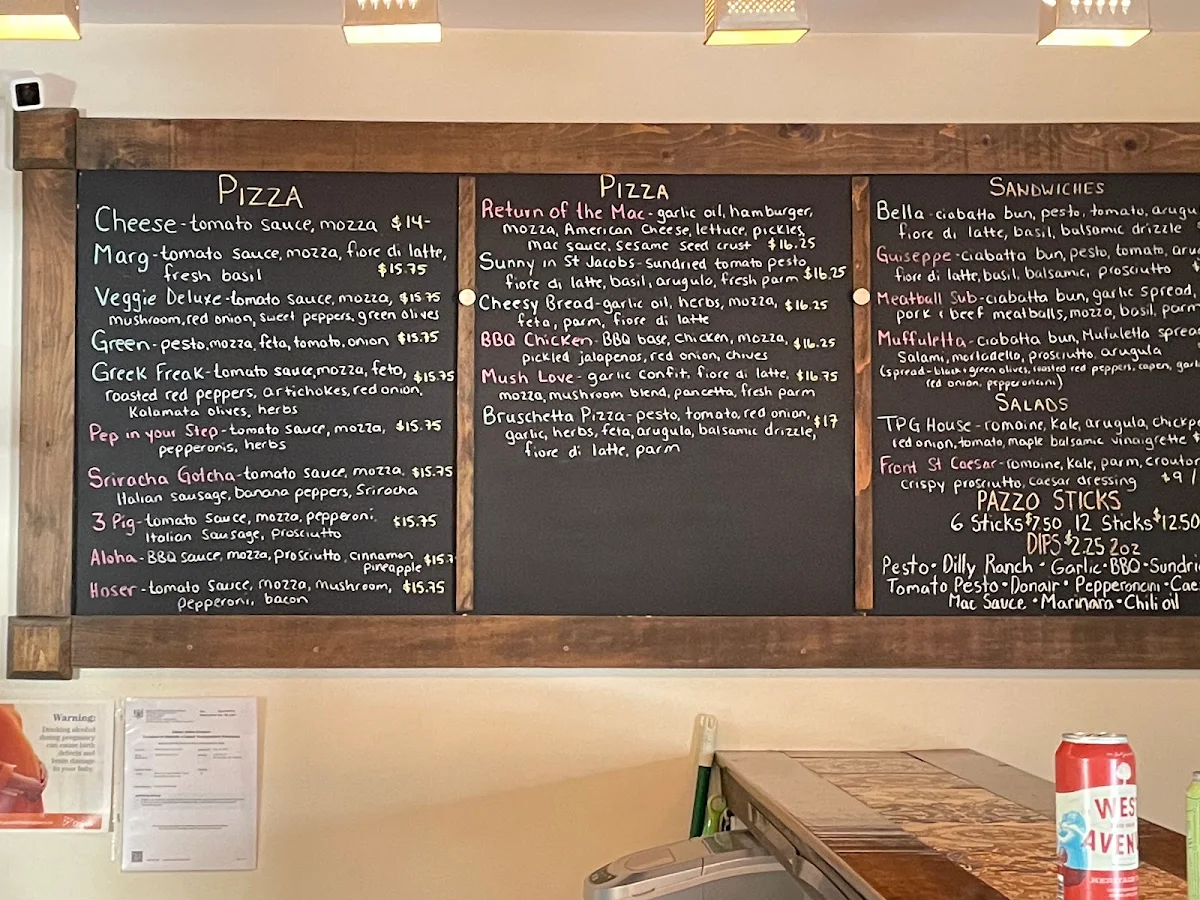 PIZZA
Cheese-tomato sauce, mozza $14-
Marg-tomato sauce, mozza, fiore di latte,
fresh basil $15.75
Veggie Deluxe-tomato sauce, mozza, $15.75
mushroom, red onion, sweet peppers, green olives
Green-pesto, mozza, feta, tomato, onion $15.75
Greek Freak-tomato sauce, mozza, feta, $15.75
roasted red peppers, artichokes, red onion,
Kalamata olives, herbs
Pep in your Step-tomato sauce, mozza, $15.75
pepperonis, herbs
Sriracha Gotcha-tomato sauce, mozza, $15.75
Italian sausage, banana peppers, Sriracha
3 Pig-tomato sauce, mozza, pepperoni, $15.75
Italian Sausage, prosciutto
Aloha-BBQ sauce, mozza, prosciutto, cinnamon
pineapple $15.7
Hoser-tomato sauce, mozza, mushroom, $15.75
pepperoni, bacon
PIZZA
Return of the Mac-garlic oil, hamburger,
mozza, American Cheese, lettuce, pickles,
mac sauce, sesame seed crust $16.25
Sunny in St Jacobs-sundried tomato pesto,
fiore di latte, basil, arugula, fresh parm $16.25
Cheesy Bread-garlic oil, herbs, mozza, $16.25
feta, parm, fiore di latte
BBQ Chicken-BBQ base, chicken, mozza, $16.25
pickled jalapenos, red onion, chives
Mush Love-garlic confit, fiore di latte, $16.75
mozza, mushroom blend, pancetta, fresh parm
Bruschetta Pizza-pesto, tomato, red onion, $17
garlic, herbs, feta, arugula, balsamic drizzle,
fiore di latte, parm
SANDWICHES
Bella-ciabatta bun, pesto, tomato, arugu
fiore di latte, basil, balsamic drizzle
Guiseppe-ciabatta bun, pesto, tomato, aru
fiore di latte, basil, balsamic, prosciutto
Meatball Sub-ciabatta bun, garlic spread,
pork & beef meatballs, mozza, basil, parm
Muffuletta-ciabatta bun, Mufuletta sprea
Salami, mortadello, prosciutto, arugula
(spread-black & green olives, roasted red peppers, capers, garl
red onion, pepperoncini)
SALADS
TPG House-romaine, kale, arugula, chickp
red onion, tomato, maple balsamic vinaigrette
Front St Caesar-romaine, kale, parm, crouton
crispy prosciutto, caesar dressing $9/
PAZZO STICKS
6 Sticks $7.50, 12 Sticks $12.50
DIPS $2.25 2oz
Pesto • Dilly Ranch • Garlic • BBQ • Sundri
Tomato Pesto • Donair • Pepperoncini • Cae
Mac Sauce • Marinara • Chili oil
Warning:
Drinking alcohol
during pregnancy
can cause birth
defects and
brain damage
to your baby.
WEST
AVEN